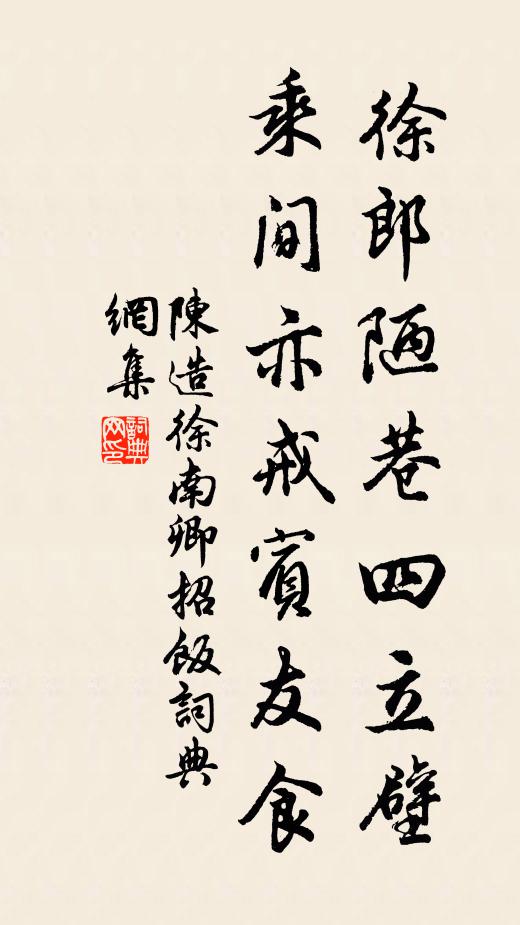 徐郎陋巷四立壁
乘间亦戒賓友食
陳造徐南卿招飯詞典
網集
詞典網印